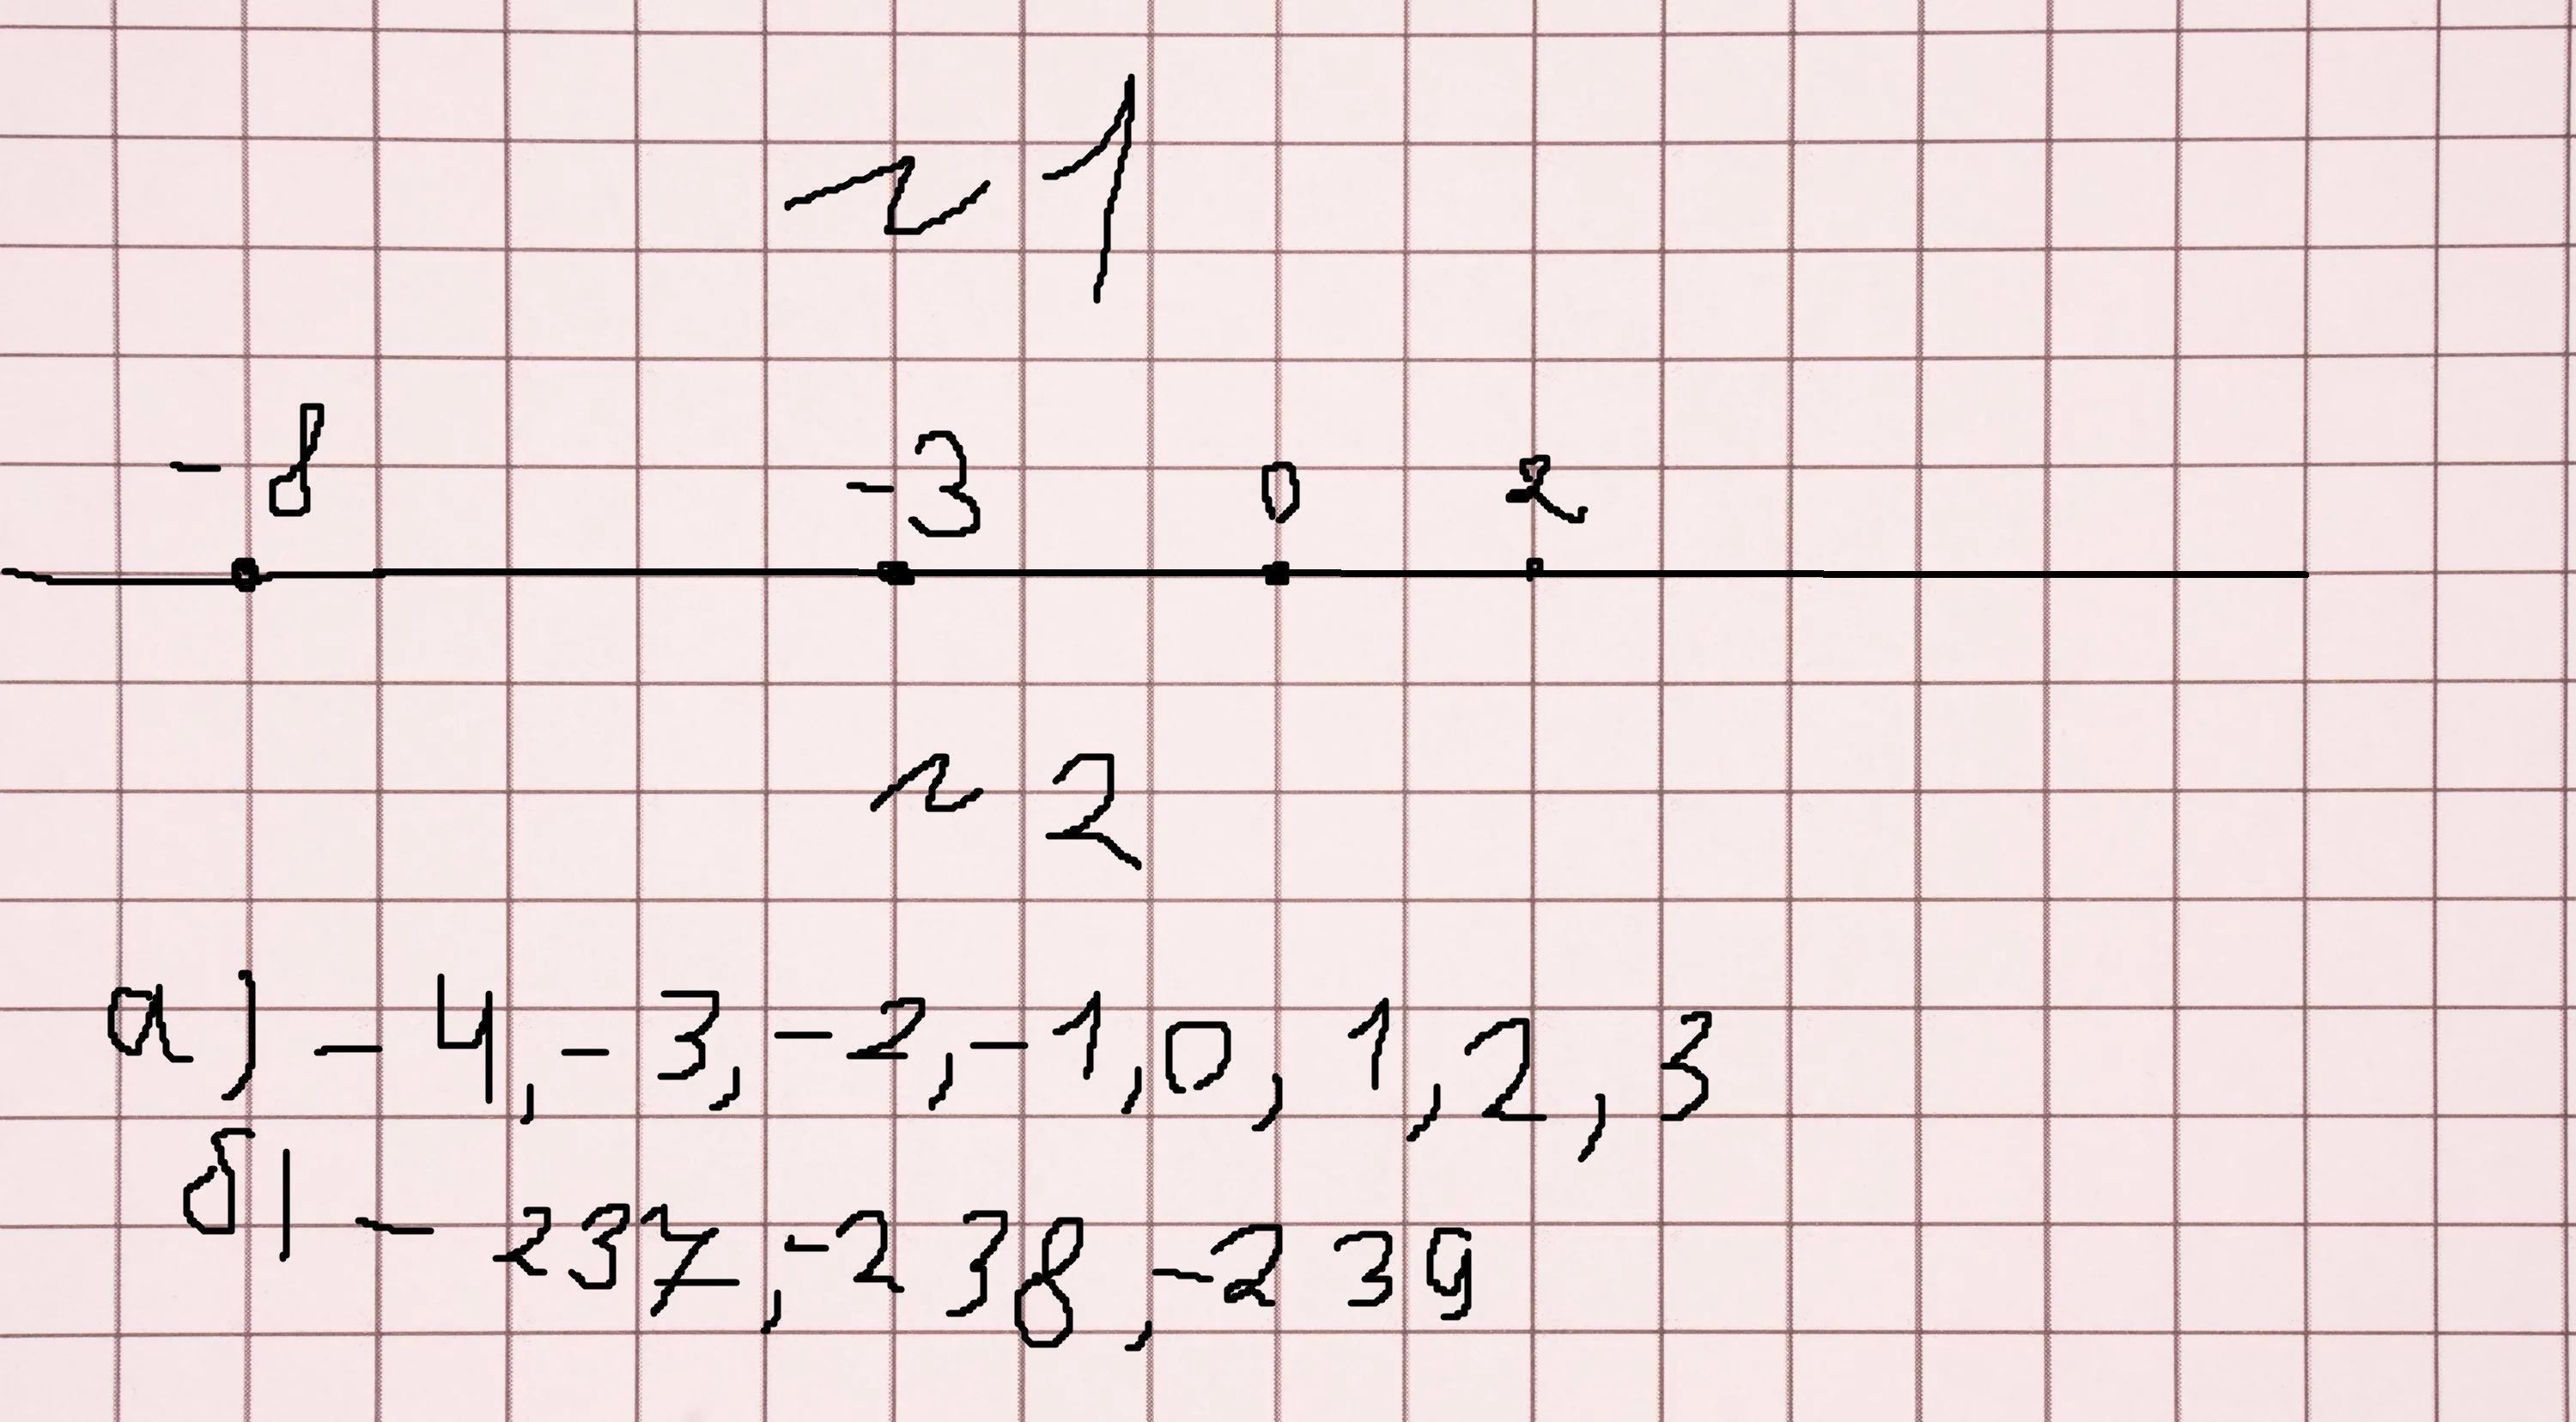 N 1
-8 -3 0 2
N 2
а) -4, -3, -2, -1, 0, 1, 2, 3
б) -237, -238, -239